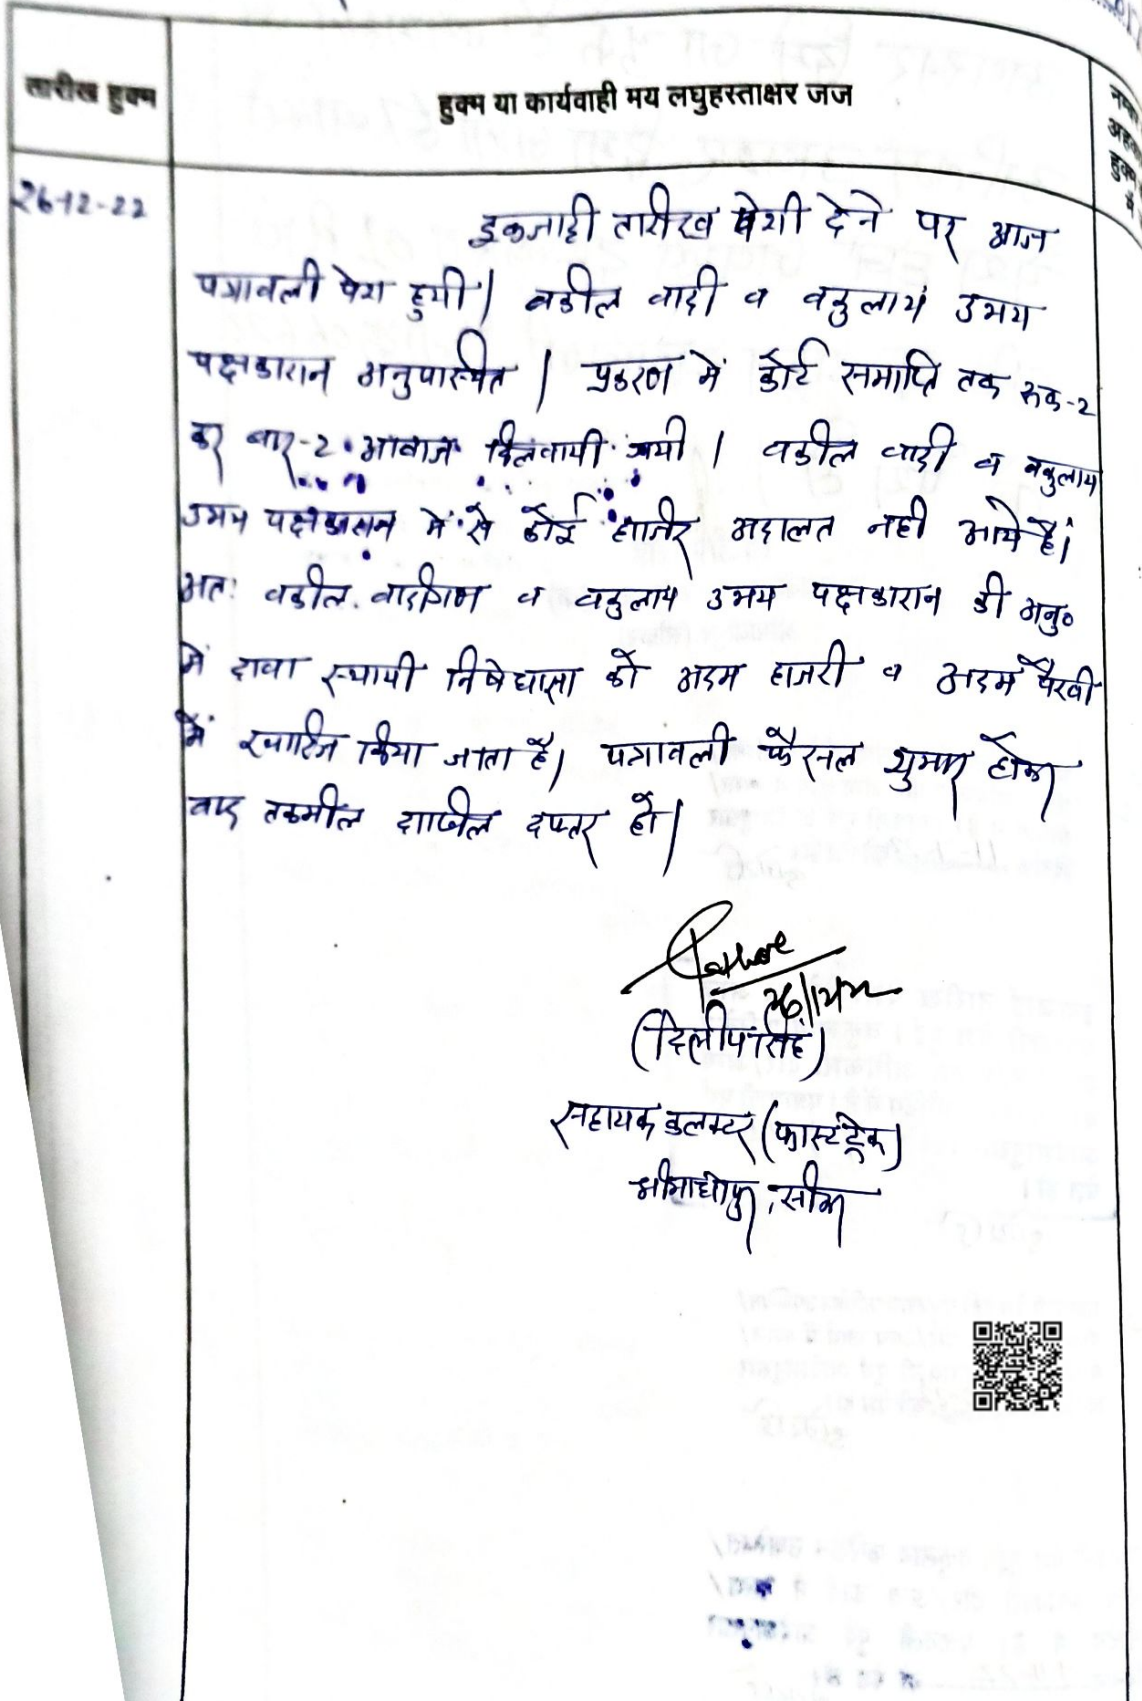 तारीख हुक्म
हुक्म या कार्यवाही मय लघुहस्ताक्षर जज
अहक
हुक्म
में
26-12-22
इकजाही तारीख पेशी देने पर आज
पत्रावली पेश हुयी। वकील वादी व वकुलाय उभय
पक्षकारान अनुपस्थित। प्रकरण में कोर्ट समाप्ति तक रूक-2
कर बार-2 आवाज दिलवायी गयी। वकील वादी व वकुलाय
उभय पक्षकारान में से कोई हाजिर अदालत नही आये है।
अतः वकील वादीगण व वकुलाय उभय पक्षकारान की अनु०
में दावा स्थायी निषेधाज्ञा को अदम हाजरी व अदम पैरवी
में खारिज किया जाता है। पत्रावली फैसल शुमार होकर
बाद तकमील दाखिल दफ्तर हो।
26/12/22
(दिलीपसिंह)
सहायक कलक्टर (फास्टट्रेक)
श्रीमाधोपुर, सीकर